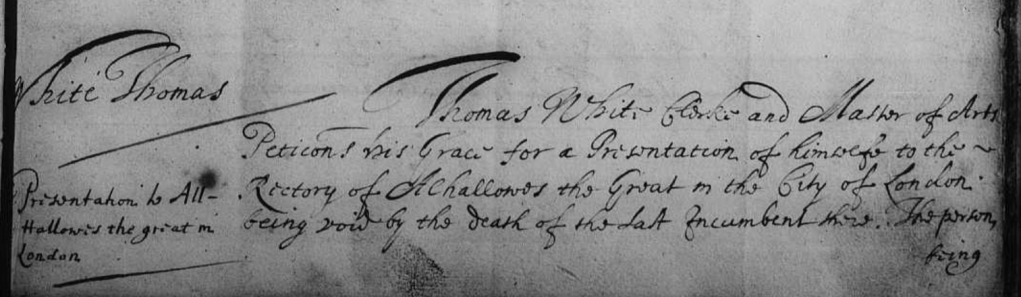 White Thomas
Thomas White Clerke and Master of Arts
Peticons his Grace for a Presentation of himselfe to the
Rectory of Alhallowes the Great in the City of London
being void by the death of the last Incumbent there. The person
being
Presentation to All-
Hallowes the great in
London